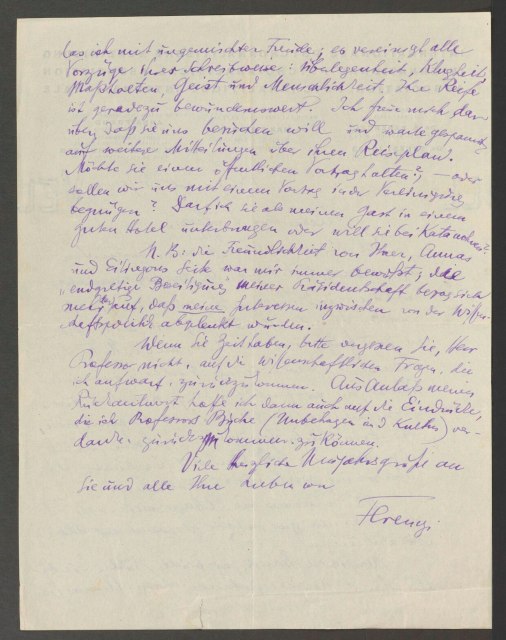 las ich mit ungemischter Freude; es vereinigt alle
Vorzüge ihrer Schreibweise: Überlegenheit, Klugheit,
Maßhalten, Geist und Menschlichkeit. Ihre Reife
ist geradezu bewundernswert. Ich freue mich dar-
über, daß sie uns besuchen will und warte gespannt
auf weitere Mitteilungen über ihren Reiseplan.
Möchte sie einen öffentlichen Vortrag halten?, — oder
sollen wir uns mit einem Vortrag in der Vereinigung
begnügen? Darf ich sie als meinen Gast in einem
guten Hotel unterbringen oder will sie bei Kata wohnen?
N. B: die Freundlichkeit von Ihrer, Annas
und Eitingons Seite war mir immer bewußt; die
„endgiltige Beseitigung meiner Präsidentschaft bezog sich
nur darauf, daß meine Interessen inzwischen von der Wissen-
schaftspolitik abgelenkt wurden.
Wenn Sie Zeit haben, bitte vergessen Sie, Herr
Professor nicht, auf die wissenschaftlichen Fragen, die
ich aufwarf, zurückzukommen. Aus Anlaß meiner
Rückantwort hoffe ich dann auch auf die Eindrücke,
die ich Professors Buche (Unbehagen in d Kultur) ver-
danke zurückkommen zu können.
Viele herzliche Neujahrsgrüße an
Sie und alle Ihre Lieben von
Ferenczi